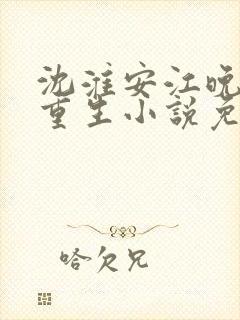 沈淮安江晚
重生小说免
哈欠兄